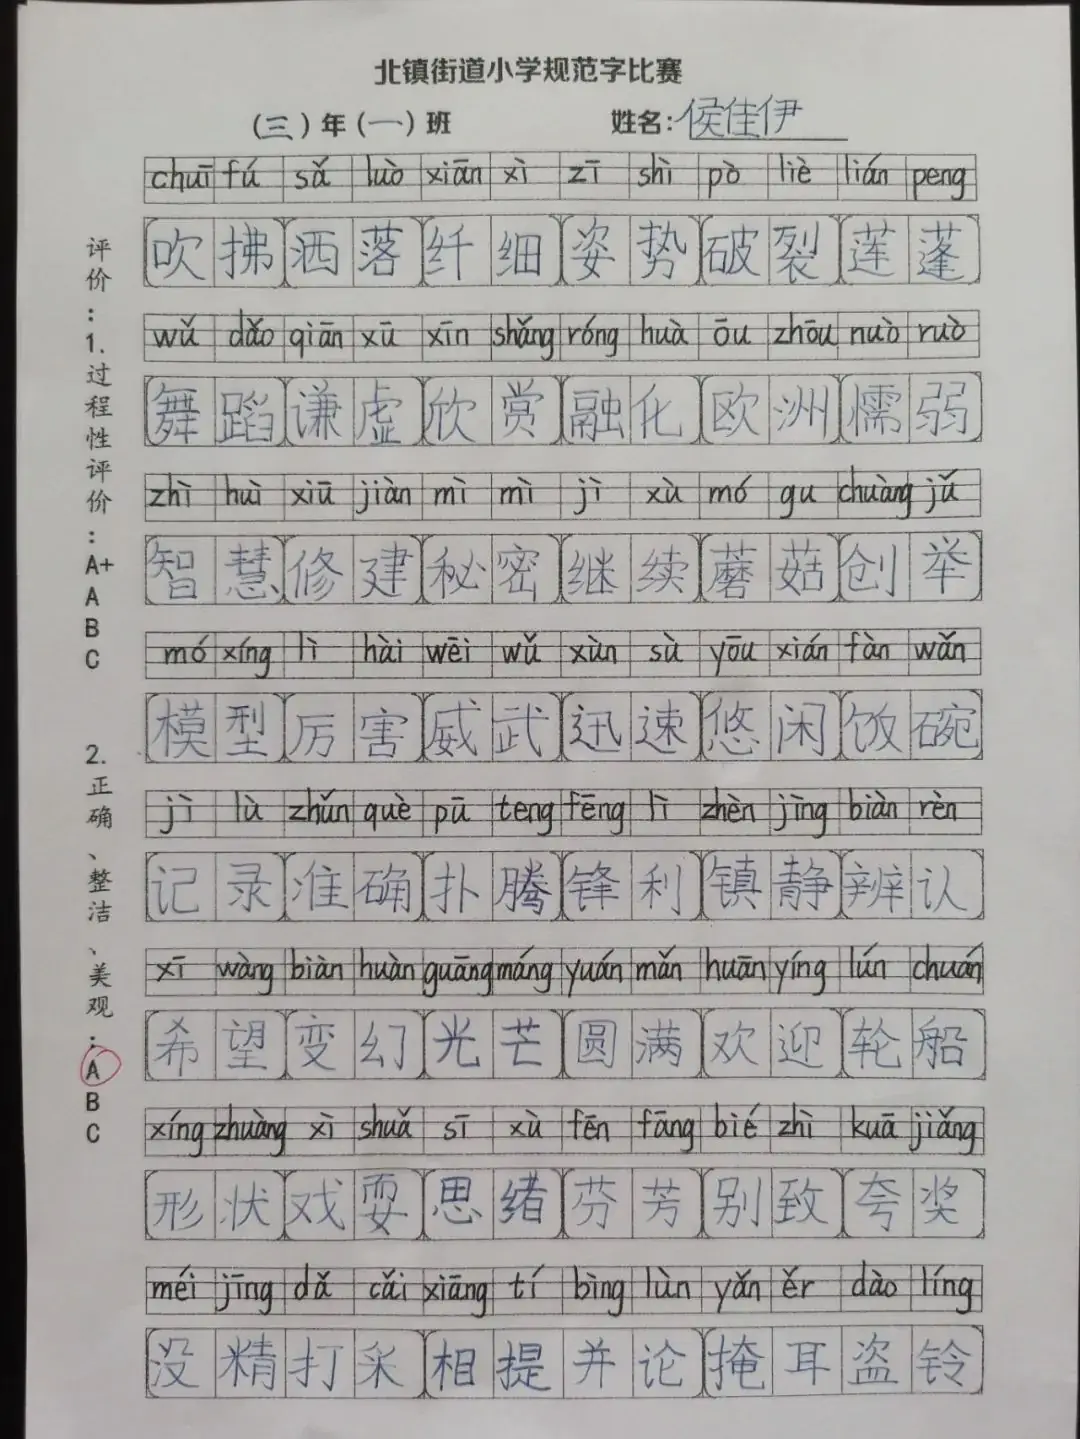 北镇街道小学规范字比赛
(三)年(一)班 姓名:侯佳伊
chuī fú sǎ luò xiān xì zī shì pò liè lián peng
吹拂洒落纤细姿势破裂莲蓬
wǔ dǎo qiān xū xīn shǎng róng huà ōu zhōu nuò ruò
舞蹈谦虚欣赏融化欧洲懦弱
zhì huì xiū jiàn mì mì jì xù mó gu chuàng jǔ
智慧修建秘密继续蘑菇创举
mó xíng lì hài wēi wǔ xùn sù yōu xián fàn wǎn
模型厉害威武迅速悠闲饭碗
jì lù zhǔn què pū teng fēng lì zhèn jìng biàn rèn
记录准确扑腾锋利镇静辨认
xī wàng biàn huàn guāng máng yuán mǎn huān yíng lún chuán
希望变幻光芒圆满欢迎轮船
xíng zhuàng xì shuǎ sī xù fēn fāng bié zhì kuā jiǎng
形状戏耍思绪芬芳别致夸奖
méi jīng dǎ cǎi xiāng tí bìng lùn yǎn ěr dào líng
没精打采相提并论掩耳盗铃
评价:1.过程性评价:A+ A B C
2.正确、整洁、美观:A B C